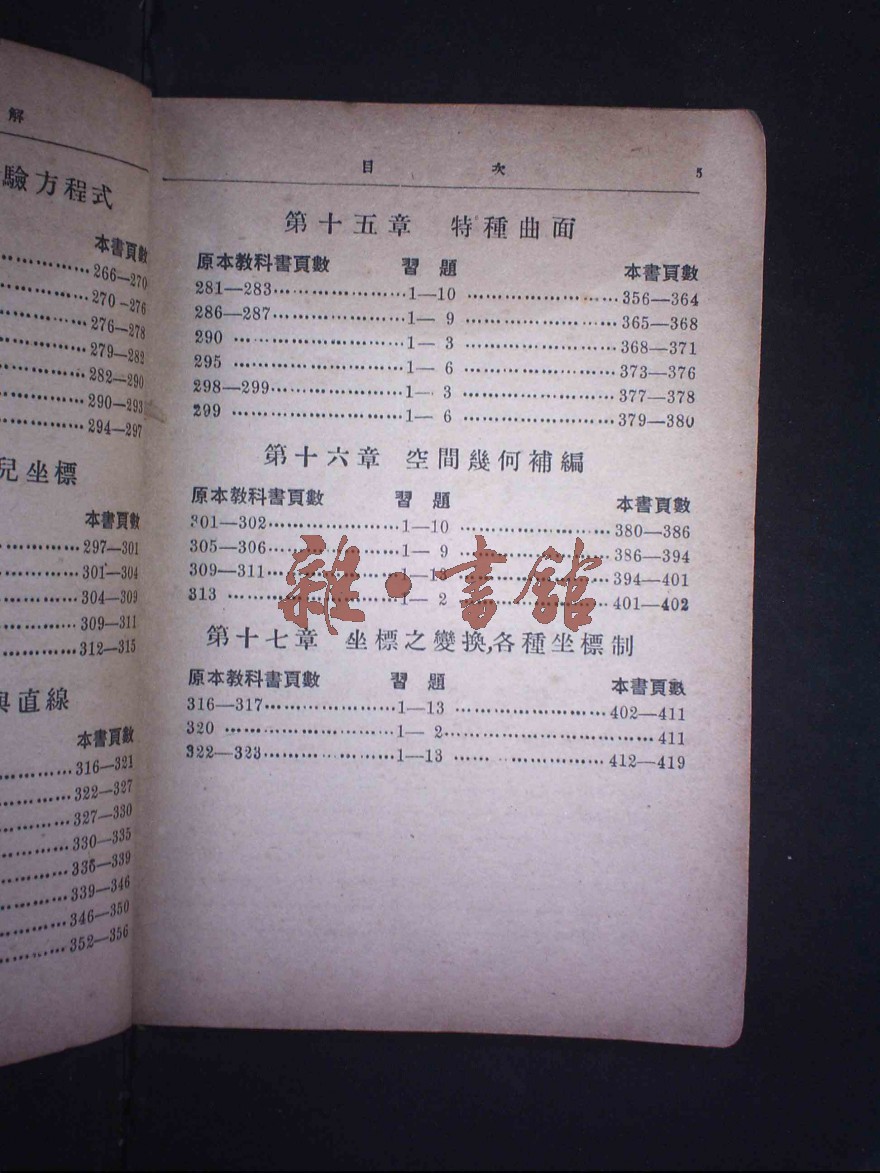 解
驗方程式
本書頁數
266—270
270—276
276—278
279—282
282—290
290—293
294—297
兒坐標
本書頁數
297—301
301—304
304—309
309—311
312—315
與直線
本書頁數
316—321
322—327
327—330
330—335
336—339
339—346
346—350
352—356
目 次 5
第十五章 特種曲面
原本教科書頁數 習題 本書頁數
281—283…………………1—10…………………356—364
286—287…………………1— 9…………………365—368
290…………………1— 3…………………368—371
295…………………1— 6…………………373—376
298—299…………………1— 3…………………377—378
299…………………1— 6…………………379—380
第十六章 空間幾何補編
原本教科書頁數 習題 本書頁數
301—302…………………1—10…………………380—386
305—306…………………1— 9…………………386—394
309—311…………………1—13…………………394—401
313…………………1— 2…………………401—402
雜·書館
第十七章 坐標之變換,各種坐標制
原本教科書頁數 習題 本書頁數
316—317…………………1—13…………………402—411
320…………………1— 2…………………411
322—323…………………1—13…………………412—419